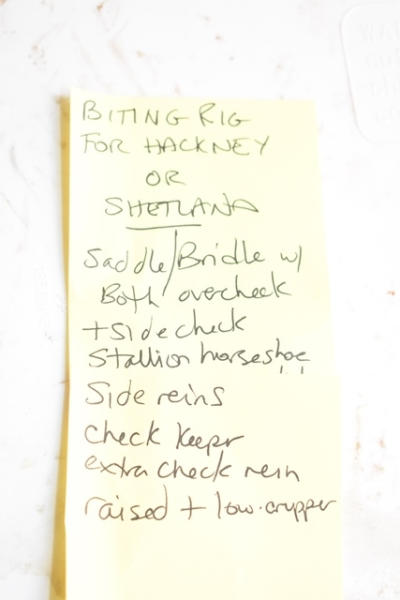 BITING RIG
FOR HACKNEY
OR
SHETLAND
Saddle/Bridle w/
Both overcheck
+ Sidecheck
Stallion horseshoe
Side reins
check keeper
extra check rein
raised + low crupper